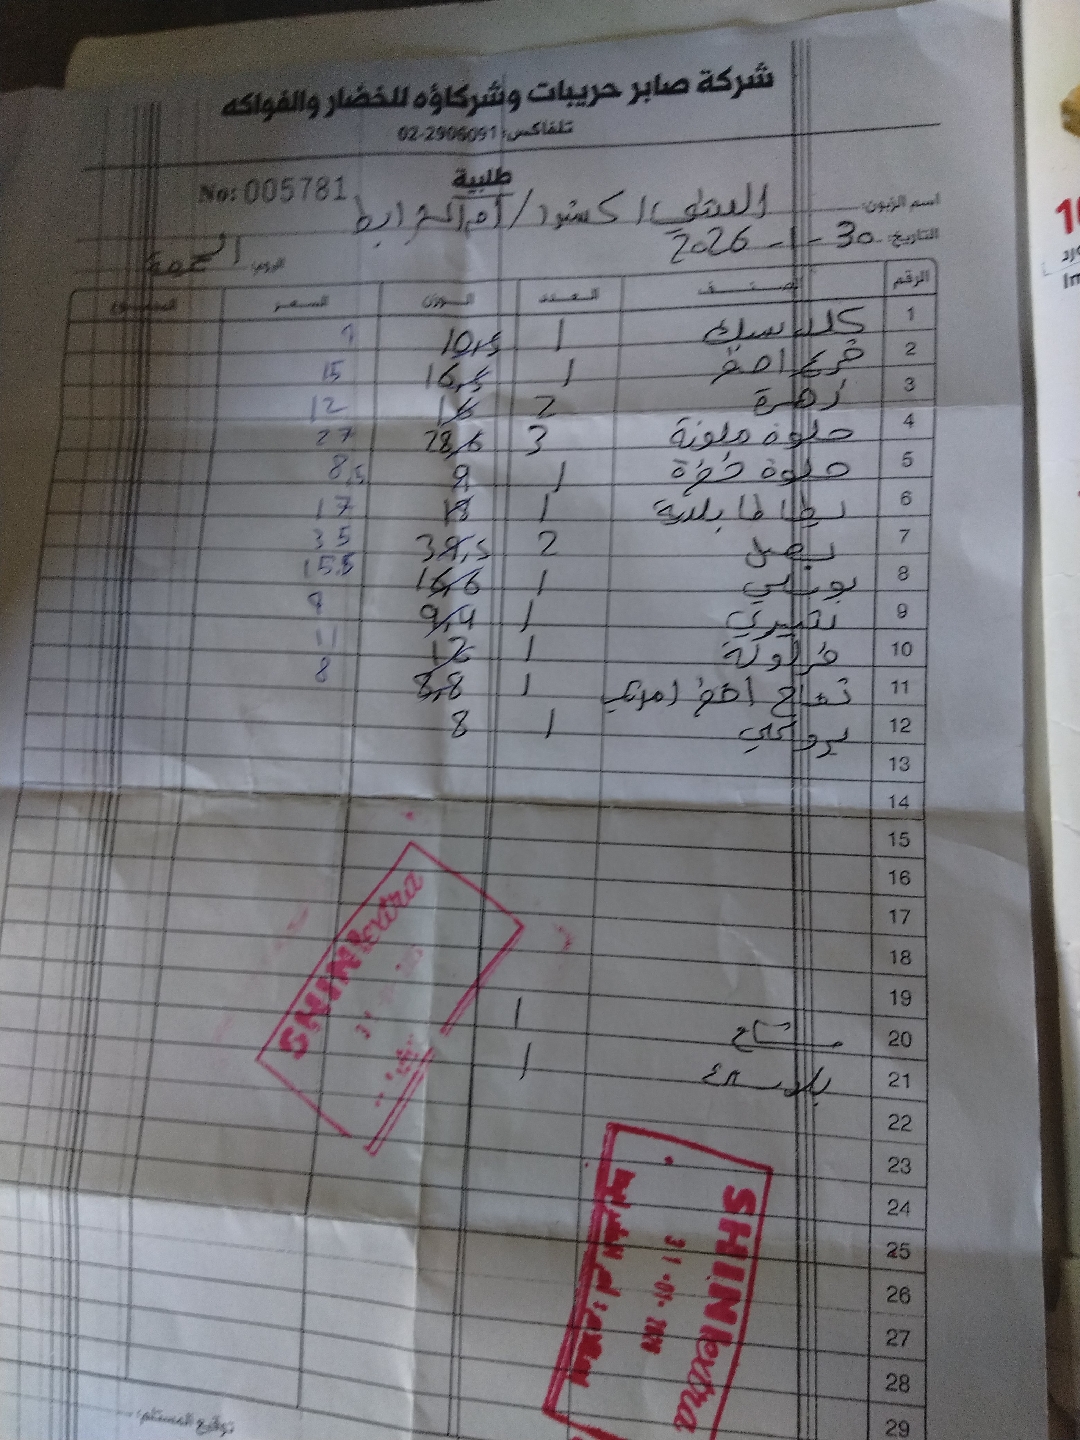 شركة صابر حريبات وشركاؤه للخضار والفواكه
تلفاكس: 02-2906091
طلبية
No: 005781
اسم الزبون: اكسترا / ام الشرايط
التاريخ: 30-1-2026 اليوم: الجمعة
الرقم الصنف العدد الوزن السعر المجموع
1 1 10,5
2 1 16,5 15
3 زهرة 2 16 12
4 حلوة ملونة 3 28,6 27
5 حلوة خضرة 1 9 8,5
6 بطاطا بلدية 1 18 17
7 بصل 2 38,5 35
8 بوملي 1 16,6 15,5
9 1 9,4 8
10 فراولة 1 12 11
11 تفاح اخضر امريكي 1 8,8 8
12 بروكلي 1 8
13
14
15
16
17
18
19
20 1
21 1
22
23
24
25
26
27
28
29
SHINI extra
31
SHINI extra
31-01-
توقيع المستلم: